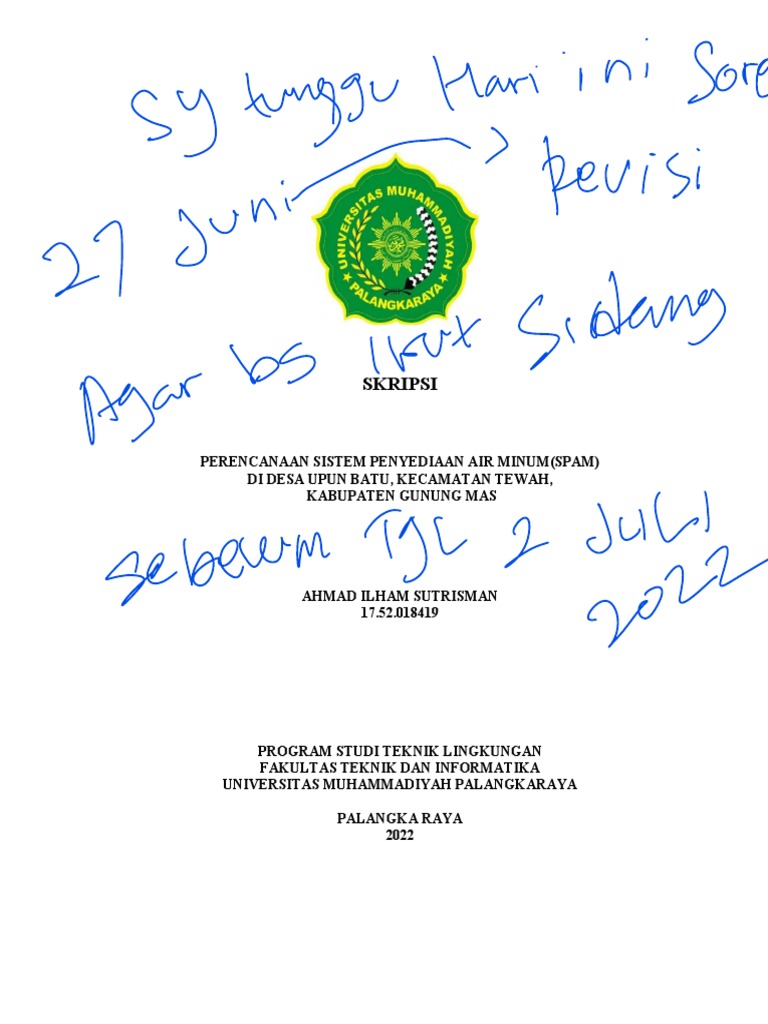 Sy tunggu Hari ini Sore
27 Juni
Revisi
UNIVERSITAS MUHAMMADIYAH
PALANGKARAYA
Agar bs Ikut Sidang
SKRIPSI
PERENCANAAN SISTEM PENYEDIAAN AIR MINUM(SPAM)
DI DESA UPUN BATU, KECAMATAN TEWAH,
KABUPATEN GUNUNG MAS
Sebelum Tgl 2 Juli
2022
AHMAD ILHAM SUTRISMAN
17.52.018419
PROGRAM STUDI TEKNIK LINGKUNGAN
FAKULTAS TEKNIK DAN INFORMATIKA
UNIVERSITAS MUHAMMADIYAH PALANGKARAYA
PALANGKA RAYA
2022